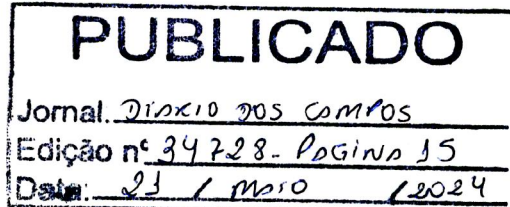 PUBLICADO
Jornal. DIARIO DOS CAMPOS
Edição nº 34728 - PAGINA 15
Data: 21 / MAIO / 2024